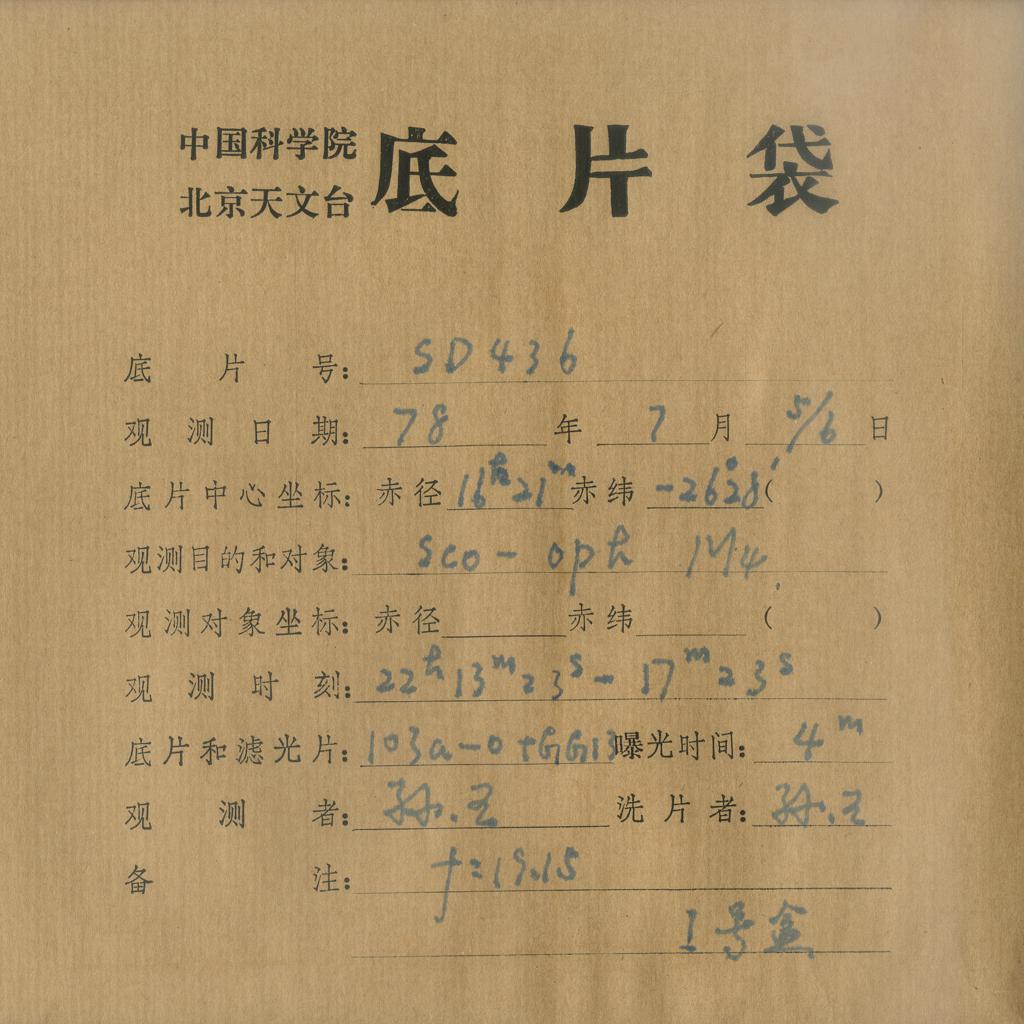 中国科学院
北京天文台
底片袋
底片号: SD436
观测日期: 78年7月5/6日
底片中心坐标: 赤径16ʰ21ᵐ赤纬-26°28′( )
观测目的和对象: Sco - oph M4
观测对象坐标: 赤径 赤纬 ( )
观测时刻: 22ʰ13ᵐ23ˢ - 17ᵐ23ˢ
底片和滤光片: 103a-O+GG13 曝光时间: 4ᵐ
观测者: 孙.王 洗片者: 孙.王
备注: f=19.15
I号盒